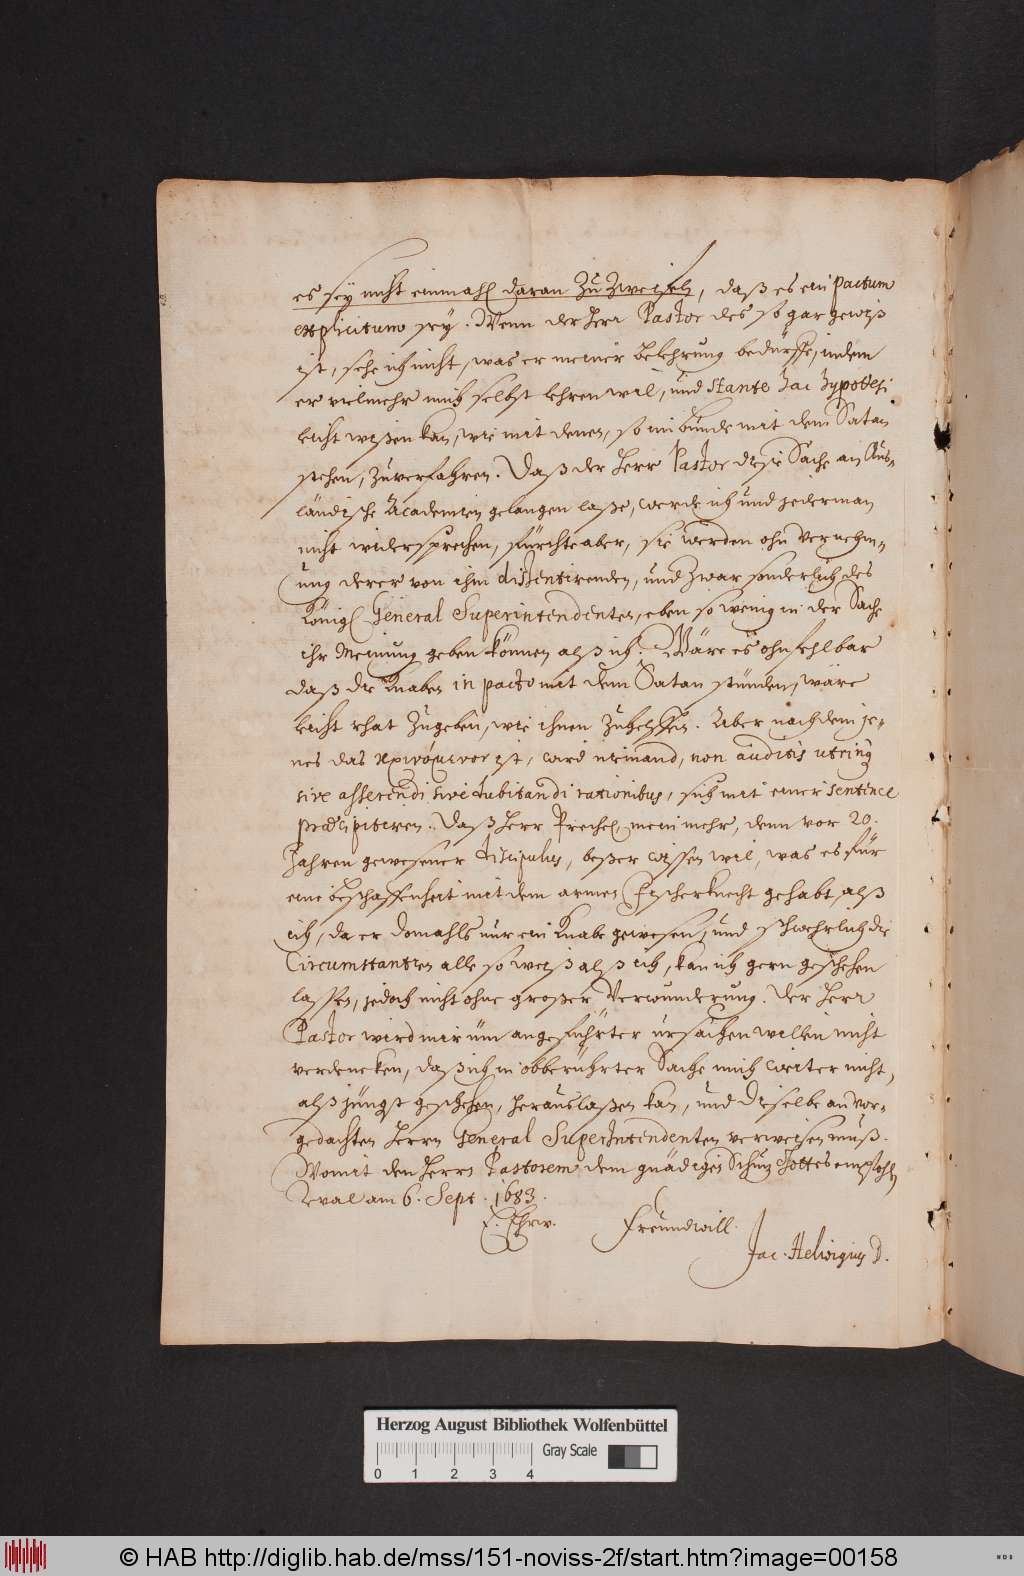 es sey nicht einmahl daran zu zweifeln, daß es ein pactum
explicitum sey. Wenn der Herr Pastor des so gar gewiß
ist, sehe ich nicht, was er meiner belehrung bedürffe, indem
er vielmehr mich selbst lehren wil, und stante hac hypothesi
leicht wißen kan, wie mit denen, so im bunde mit dem Satan
stehen, zuverfahren. Daß der Herr Pastor diese Sache an Aus-
ländische Academien gelangen laße, werde ich und jederman
nicht widersprechen, fürchte aber, sie werden ohn vernehm-
ung derer von ihm dissentirenden, und zwar sonderlich des
Königl General Superintendenten, eben so wenig in der Sache
ihr Meinung geben können alß ich. Wäre es ohnfehlbar
daß die Knaben in pacto mit dem Satan stünden, wäre
leicht rhat zugeben, wie ihnen zuhelffen. Aber nachdem je-
nes das κρινόμενον ist, wird niemand, non auditis utrinq
sive asserendi sive dubitandi rationibus, sich mit einer sentence
præcipitiren. Daß Herr mein mehr, denn vor 20.
Jahren gewesener discipulus, beßer wissen wil, was es für
eine beschaffenheit mit dem armen Fischerknecht gehabt, alß
ich, da er domahls nur ein Knabe gewesen, und schwehrlich die
Circumstantien alle so weiß alß ich, kan ich gern geschehen
lassen, jedoch nicht ohne großer Verwunderung. Der Herr
Pastor wird mir üm angeführter ursachen willen nicht
verdencken, daß ich in obberührter Sache mich weiter nicht,
alß jüngst geschehen, herauslaßen kan, und dieselbe an vor-
gedachten Herrn General Superintendenten verweisen muß.
Womit den Herrn Pastorem dem gnädigen Schutz Gottes empfohlen
Reval am 6. Sept. 1683.
E. Ehrw. freundwill.
Jac. Helwigius D.
Herzog August Bibliothek Wolfenbüttel
Gray Scale
0 1 2 3 4
© HAB http://diglib.hab.de/mss/151-noviss-2f/start.htm?image=00158